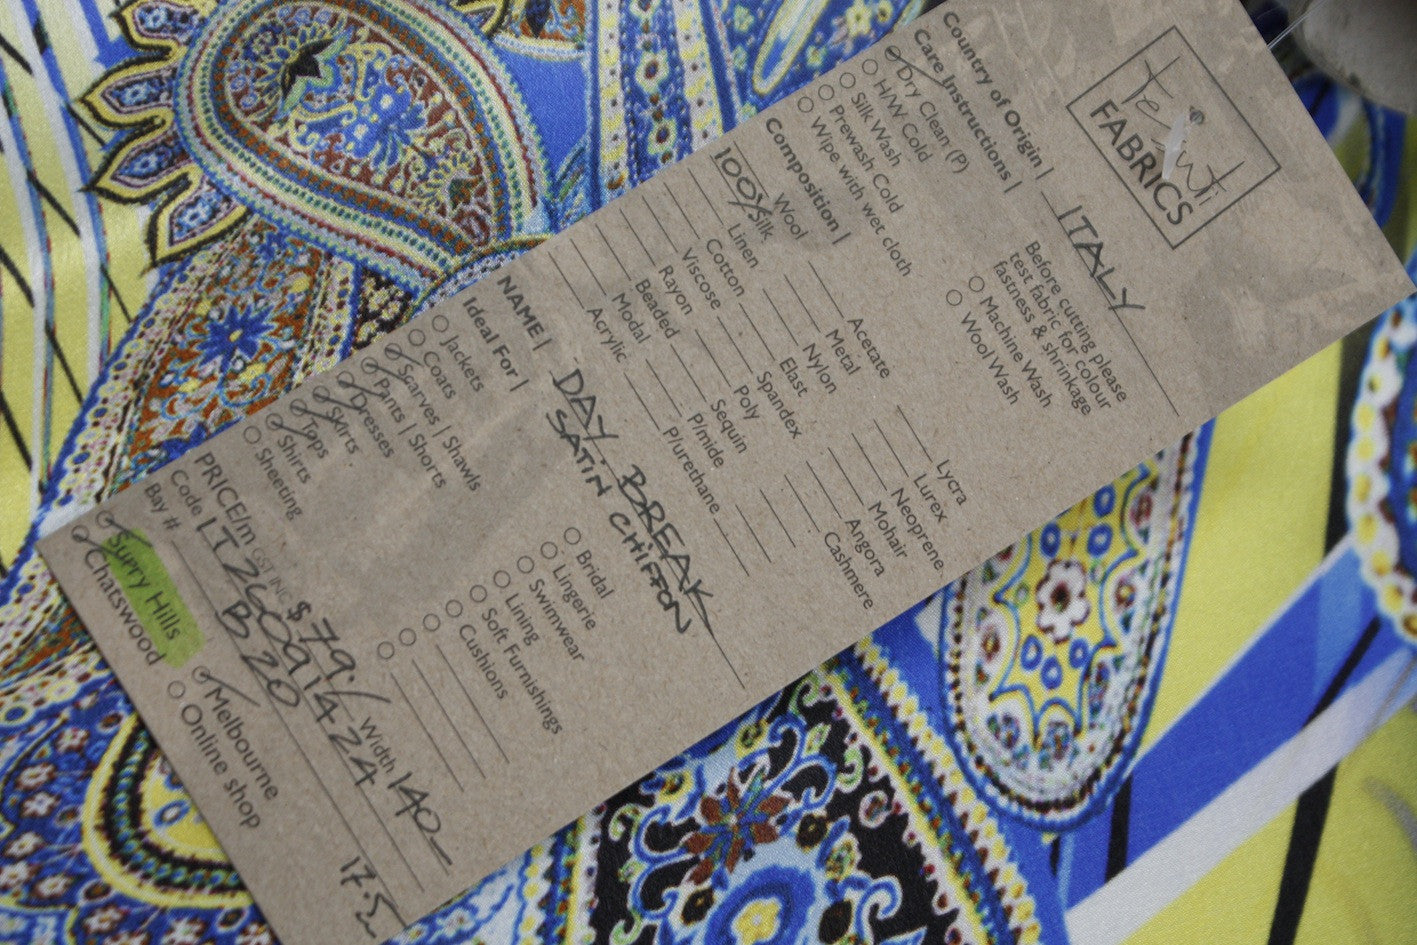 Tessuti
FABRICS
Country of Origin | ITALY
Care Instructions |
Dry Clean (P)
H/W Cold
Silk Wash
Prewash Cold
Wipe with wet cloth
Before cutting please
test fabric for colour
fastness & shrinkage
Machine Wash
Wool Wash
Composition |
Wool
100% Silk
Linen
Cotton
Viscose
Rayon
Beaded
Modal
Acrylic
Acetate
Metal
Nylon
Elast
Spandex
Poly
Sequin
P/mide
P/urethane
Lycra
Lurex
Neoprene
Mohair
Angora
Cashmere
NAME | DAY BREAK
SATIN CHIFFON
Ideal For |
Jackets
Coats
Scarves | Shawls
Pants | Shorts
Dresses
Skirts
Tops
Shirts
Sheeting
Bridal
Lingerie
Swimwear
Lining
Soft Furnishings
Cushions
PRICE/m GST INC $ 79./ Width 140
Code IT26091424
Bay # B 20
17.5
Surry Hills
Chatswood
Melbourne
Online shop